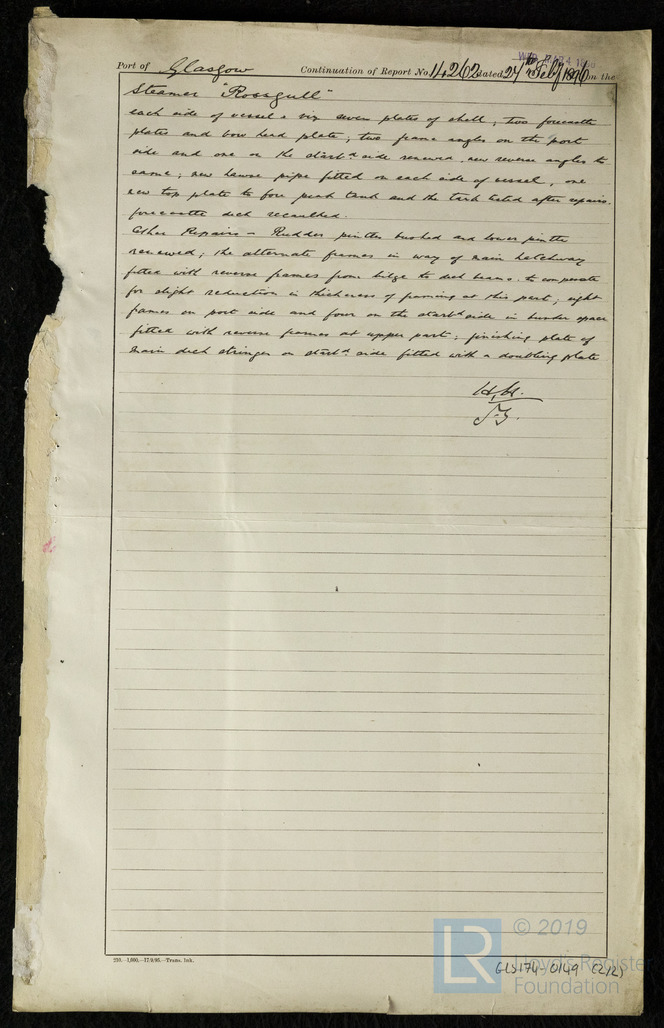 Port of Glasgow Continuation of Report No. 14,262 dated 24th Feby 1896 on the
Steamer "Rossgull"
each side of vessel & viz seven plates of shell; two forecastle
plates and bow head plate; two frame angles on the port
side and one on the starbd side renewed, new reverse angles to
same; new hawse pipe fitted on each side of vessel, one
new top plate to fore peak tank and the tank tested after repairs.
forecastle deck recaulked.
Other Repairs - Rudder pintles bushed and lower pintle
renewed; the alternate frames in way of main hatchway
fitted with reverse frames from bilge to deck beams to compensate
for slight reduction in thickness of framing at this part; eight
frames on port side and four on the starbd side in bunker space
fitted with reverse frames at upper part; finishing plate of
main deck stringer on starbd side fitted with a doubling plate
H.H.
210.-1,000.-17/9/95.-Trans. Ink.
LR
© 2019
Lloyd's Register
Foundation
GLS174-0149 (2/2)